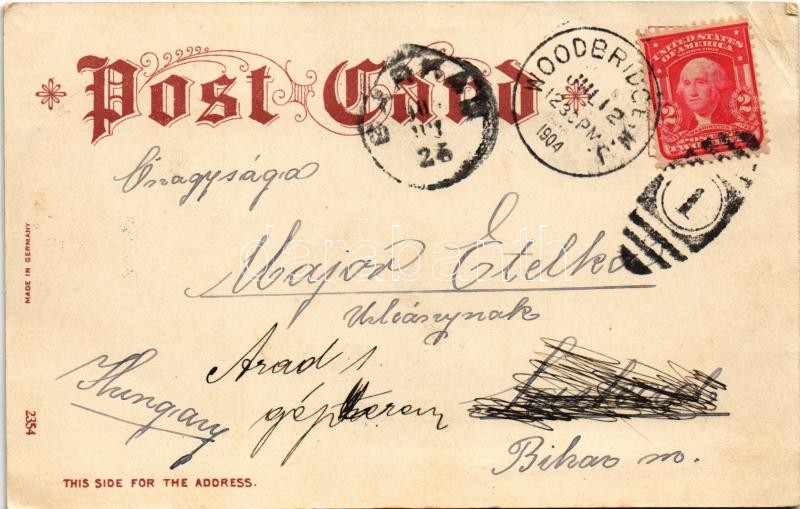 Post Card
WOODBRIDGE N.J.
JUL 12
12 30 PM
1904
26
UNITED STATES
OF AMERICA
2 2
1
Őnagysága
Major Etelka
Urleánynak
Arad 1
Hungary
Bihar m.
MADE IN GERMANY
2354
THIS SIDE FOR THE ADDRESS.
darabanth.com